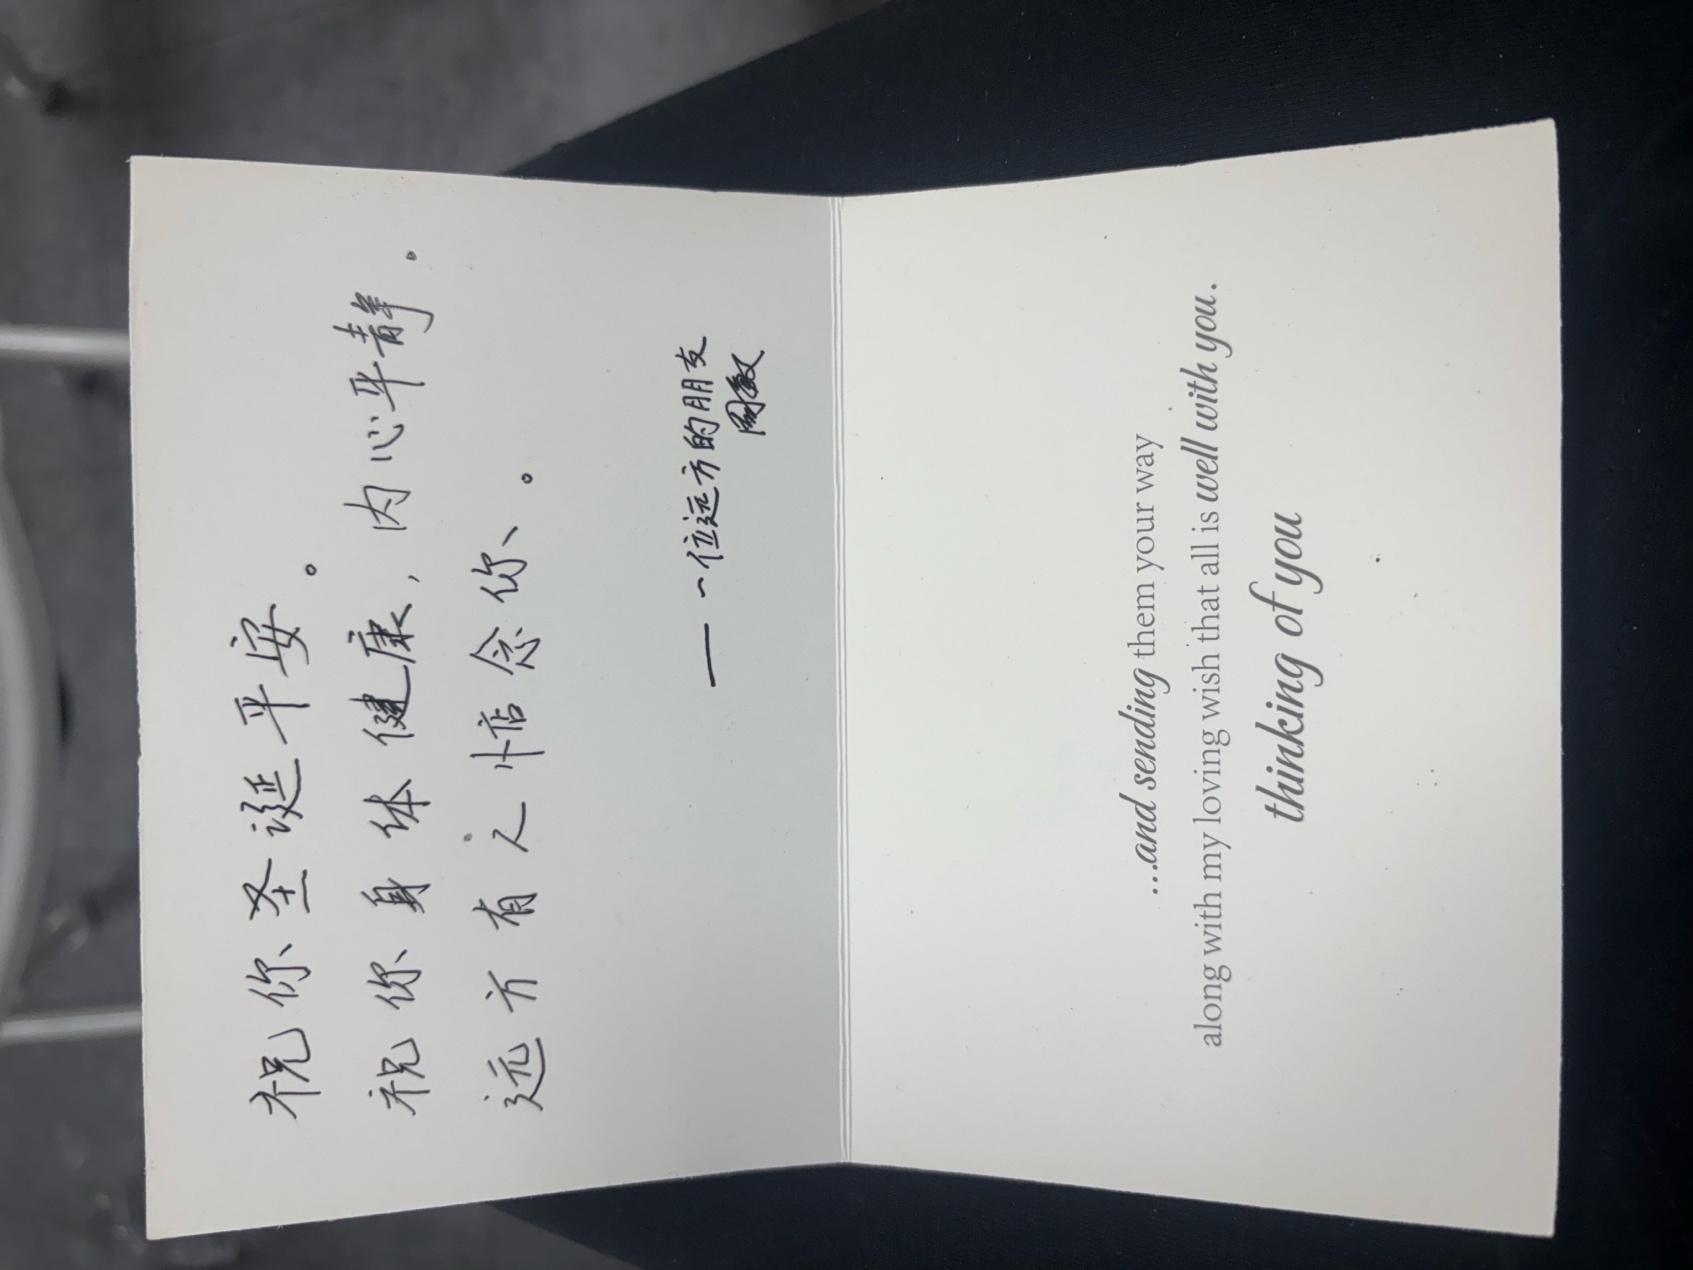 祝你圣诞平安。
祝你身体健康,内心平静.
远方有人惦念你、。
—— 一位远方的朋友
周微
...and sending them your way
along with my loving wish that all is well with you.
thinking of you